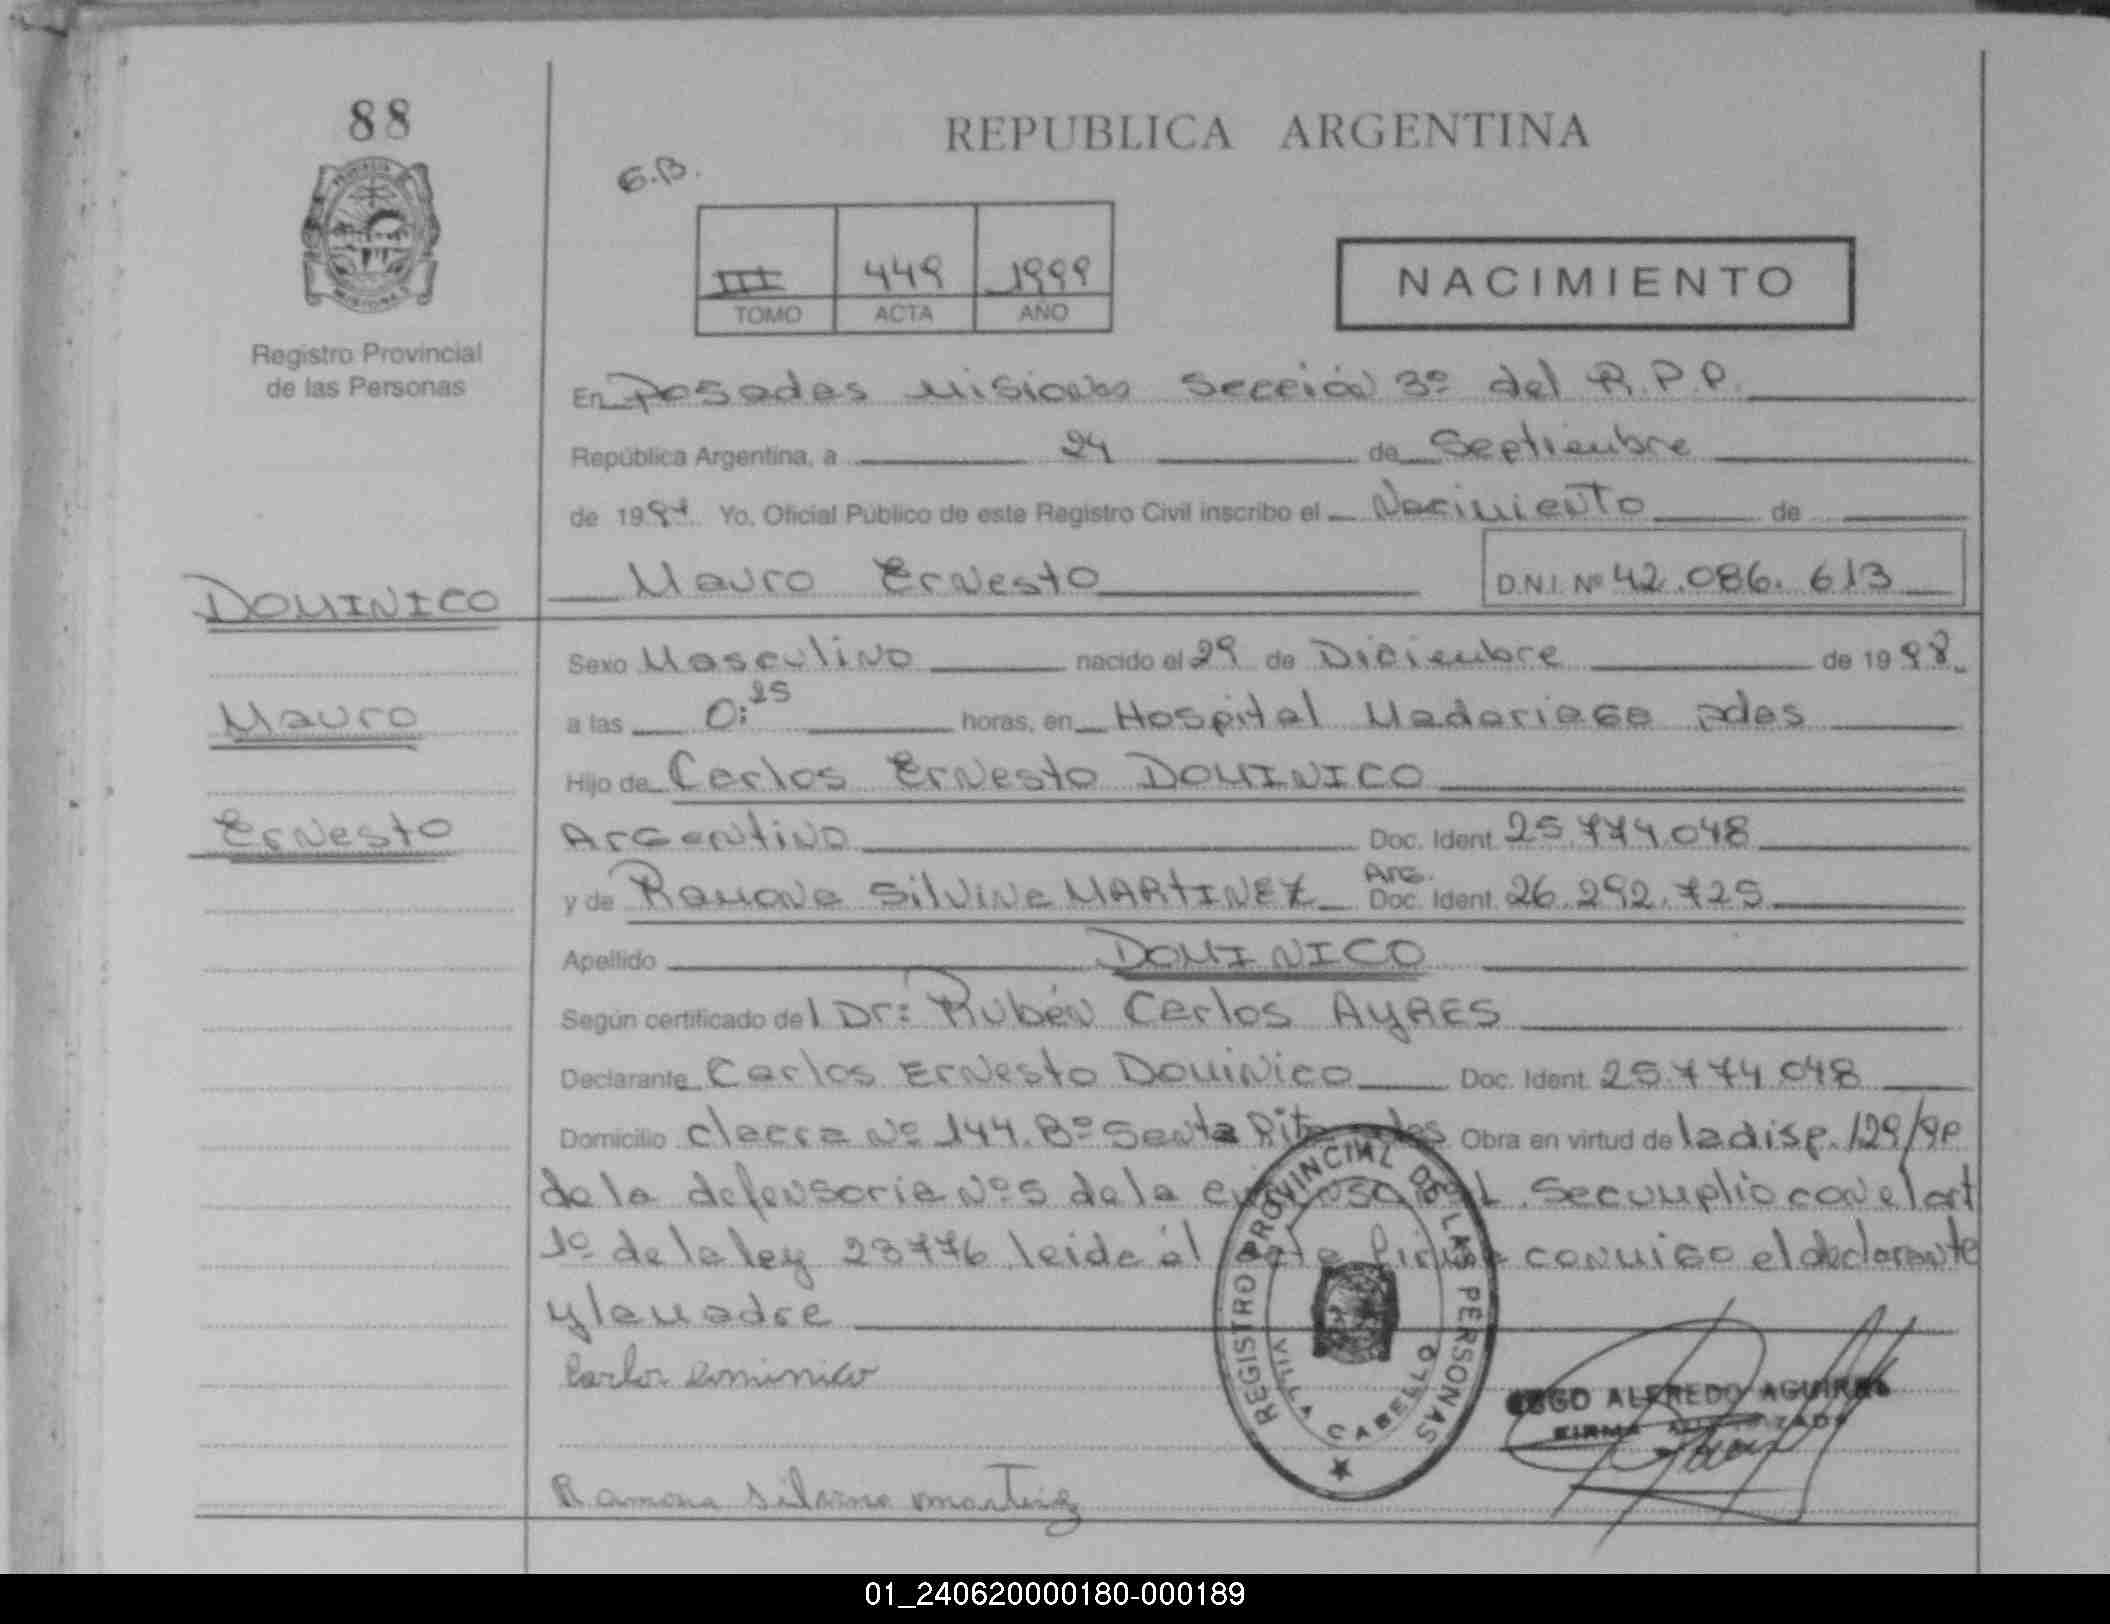 88
REPUBLICA ARGENTINA
G.B.
III 449 1999
TOMO ACTA AÑO
NACIMIENTO
Registro Provincial
de las Personas
En Posadas Misiones Sección 3º del R.P.P.
República Argentina, a 24 de Septiembre
de 19 Yo, Oficial Público de este Registro Civil inscribo el Nacimiento de
Mauro Ernesto D.N.I. Nº 42.086.613
DOMINICO
Mauro
Ernesto
Sexo Masculino nacido el 29 de Diciembre de 1998
a las 0:25 horas, en Hospital Madariaga pdas
Hijo de Carlos Ernesto DOMINICO
Argentino Doc. Ident. 25.774.048
y de Ramona Silvina MARTINEZ Arg. Doc. Ident. 26.292.725
Apellido DOMINICO
Según certificado del Dr: Rubén Carlos AYRES
Declarante Carlos Ernesto Dominico Doc. Ident. 25.774.048
Domicilio chacra Nº 144. Bº Santa Rita pdas Obra en virtud de la disp. 129/99
de la defensoria Nº5 de la Se cumplio con el art
1º de la ley 23776 leida el acta firma conmigo el declarante
y la madre
Carlos Dominico
REGISTRO PROVINCIAL DE LAS PERSONAS
VILLA CABELLO
HUGO ALFREDO AGUIRRE
FIRMA AUTORIZADA
Ramona Silvina Martinez
01_240620000180-000189